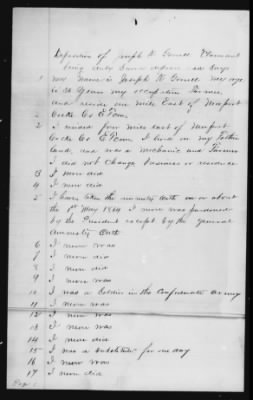 Deposition of Joseph H Gorrell Claimant
being duly Sworn deposes and Says
1 my name is Joseph H Gorrell my age
is 26 Years my occupation Farmer,
and reside one mile East of Newport
Cocke Co E Tenn
2 I resided four miles east of Newport
Cocke Co E Tenn I lived on my Father
Land, and was a mechanic and Farmer
I did not change business or residence
3 I never did
4 I never did
5 I have taken the amnesty oath on or about
the 1st May 1864 I never was pardoned
by the President except by the general
Amnesty Oath
6 I never was
7 I never did
8 I never did
9 I never was
10 I was a Soldier in the Confederate army
11 I never was
12 I never was
13 I never was
14 I never did
15 I was a substitute for one day
16 I never was
17 I never did
Page 1